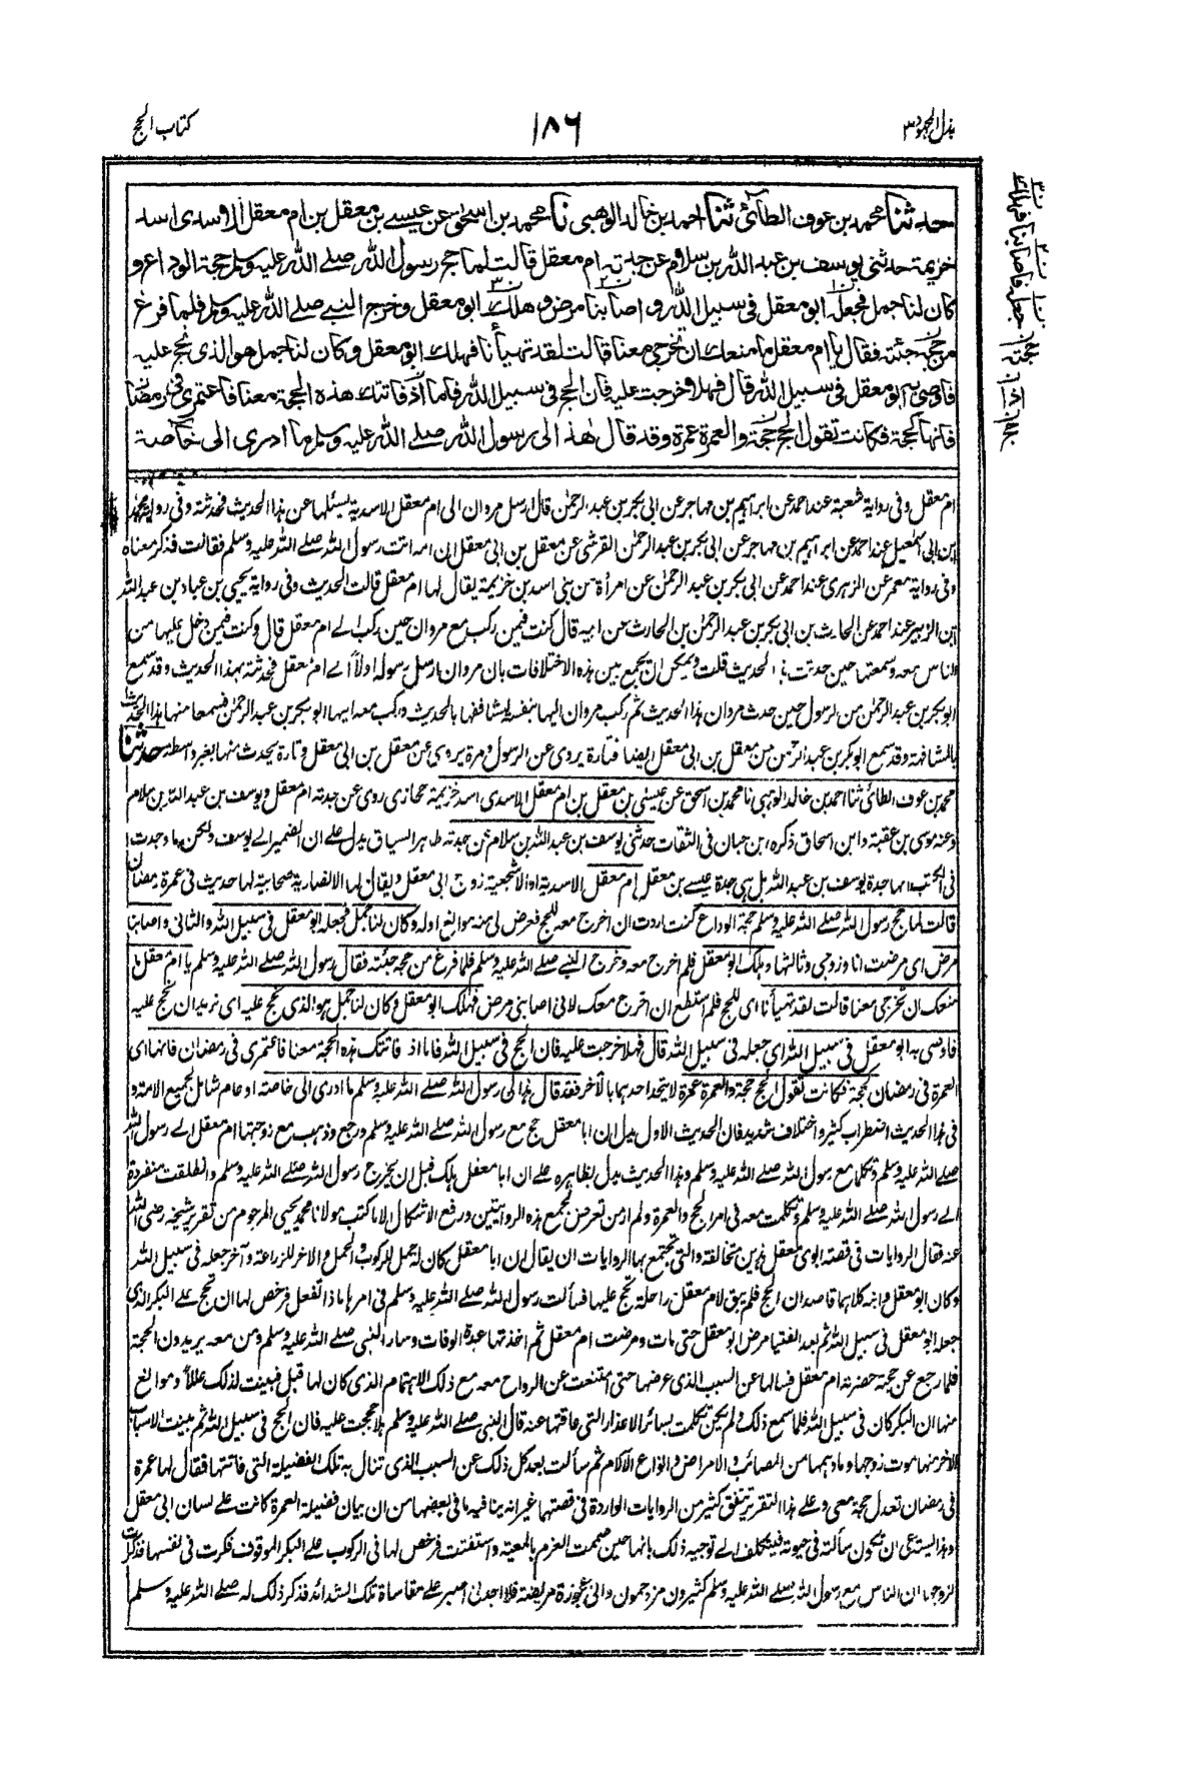 بذل المجهود ٣
١٨٦
كتاب الحج
حدثنا محمد بن عوف الطائى ثنا احمد بن خالد الوهبى نا محمد بن اسحق عن عيسے بن معقل بن ام معقل الاوسدى اسد
خزيمة حدثنى يوسف بن عبد الله بن سلام عن جدته ام معقل قالت لما حج رسول الله صلے الله عليه وسلم حجة الوداع و
كان لنا جمل فجعله ابو معقل فى سبيل الله و اصابنا مرض و هلك ابو معقل وخرج النبے صلے الله عليه وسلم فلما فرغ
من حجته جئته فقال يا ام معقل ما منعك ان تخرجى معنا قالت لقد تهيأنا فهلك ابو معقل و كان لنا جمل هو الذى نحج عليه
فاوصى به ابو معقل فى سبيل الله قال فهلا خرجت عليه فان الحج فى سبيل الله فاما اذ فاتتك هذه الحجة معنا فاعتمرى فى رمضان
فانها كحجة فكانت تقول الحج حجة والعمرة عمرة وقد قال هذا لى رسول الله صلے الله عليه وسلم ما ادرى الى خاصة
ام معقل و فى رواية شعبة عند احمد عن ابراهيم بن مهاجر عن ابى بكر بن عبد الرحمٰن قال ارسل مروان الى ام معقل الاسدية يسئلها عن هذا الحديث فحدثته و فى رواية محمد
ابن ابى اسمٰعيل عند احمد عن ابراهيم بن مهاجر عن ابى بكر بن عبد الرحمٰن القرشى عن معقل بن ابى معقل ان امه اتت رسول الله صلے الله عليه وسلم فقالت فذكر معناه
و فى رواية معمر عن الزهرى عند احمد عن ابى بكر بن عبد الرحمٰن عن امرأة من بنى اسد بن خزيمة يقال لها ام معقل قالت الحديث و فى رواية يحيى بن عباد بن عبد الله
ابن الزبير عند احمد عن الحارث بن ابى بكر بن عبد الرحمٰن بن الحارث عن ابيه قال كنت فيمن ركب مع مروان حين ركب الے ام معقل قال و كنت فيمن دخل عليها من
الناس معه و سمعتها حين حدثت بهذا الحديث قلت و يمكن ان يجمع بين هذه الاختلافات بان مروان ارسل رسوله اولاً الے ام معقل فحدثته بهذا الحديث و قد سمع
ابو بكر بن عبد الرحمٰن من الرسول حين حدث مروان هذا الحديث ثم ركب مروان اليها بنفسه ليشافهها بالحديث و ركب معه ايها ابو بكر بن عبد الرحمٰن فسمعا منها هذا الحديث
بالمشافهة و قد سمع ابو بكر بن عبد الرحمٰن من معقل بن ابى معقل ايضا فتارة يروى عن الرسول و مرة يروى عن معقل بن ابى معقل و تارة يحدث منها بغير واسطة حدثنا
محمد بن عوف الطائى ثنا احمد بن خالد الوهبى نا محمد بن اسحق عن عيسى بن معقل بن ام معقل الاسدى اسد خزيمة حجازى روى عن جدته ام معقل و يوسف بن عبد الله بن سلام
و عنه موسى بن عقبة و ابن اسحاق ذكره ابن حبان فى الثقات حدثنى يوسف بن عبد الله بن سلام عن جدته ظاهر السياق يدل علے ان الضمير الے يوسف ولكن ما وجدت
فى الكتب انها جدة يوسف بن عبد الله بل هى جدة عيسے بن معقل ام معقل الاسدية او الاشجعية زوج ابى معقل و يقال لها الانصارية صحابية لها حديث فى عمرة رمضان
قالت لما حج رسول الله صلے الله عليه وسلم حجة الوداع كنت اردت ان اخرج معه للحج فعرض لى هنا موانع اوله و كان لنا جمل فجعله ابو معقل فى سبيل الله والثانى و اصابنا
مرض اى مرضت انا و زوجى و ثالثها و هلك ابو معقل فلم اخرج معه و خرج النبے صلے الله عليه وسلم فلما فرغ من حجه جئته فقال رسول الله صلے الله عليه وسلم يا ام معقل ما
منعك ان تخرجى معنا قالت لقد تهيأنا اى للحج فلم استطع ان اخرج معك لانى اصابنى مرض فهلك ابو معقل و كان لنا جمل هو الذى نحج عليه اى نريد ان نحج عليه
فاوصى به ابو معقل فى سبيل الله اى جعله فى سبيل الله قال فهلا خرجت عليه فان الحج فى سبيل الله فاما اذ فاتتك هذه الحجة معنا فاعتمرى فى رمضان فانها اى
العمرة فى رمضان كحجة فكانت تقول الحج حجة و العمرة عمرة لا يتحد احدهما بالآخر فقد قال هذا لى رسول الله صلے الله عليه وسلم ما ادرى الى خاصة او عام شامل لجميع الامة و
فى هذا الحديث اضطراب كثير و اختلاف شديد فان الحديث الاول يدل ان ابا معقل حج مع رسول الله صلے الله عليه وسلم و رجع و ذهب مع زوجتها ام معقل الے رسول الله
صلے الله عليه وسلم و تكلما مع رسول الله صلے الله عليه وسلم و هذا الحديث يدل بظاهره علے ان ابا معقل هلك قبل ان يخرج رسول الله صلے الله عليه وسلم و انطلقت منفردة
الے رسول الله صلے الله عليه وسلم و تكلمت معه فى امر الحج و العمرة و لم ار من تعرض لجمع هذه الروايتين و رفع الاشكال الا ما كتب مولانا محمد يحيى المرحوم من تقرير شيخه رضى الله
عنه فقال الروايات فى قصة ابوى معقل هذين متخالفة و التى تجتمع بها الروايات ان يقال ان ابا معقل كان له جمل للركوب و الحمل و الاخر للزراعة و آخر جعله فى سبيل الله
و كان ابو معقل و ابنه كلاهما قاصدان الحج فلم يبق لام معقل راحلة تحج عليها فسألت رسول الله صلے الله عليه وسلم فى امرها ماذا تفعل فرخص لها ان تحج علے البكر الذى
جعله ابو معقل فى سبيل الله ثم بعد الفتيا مرض ابو معقل حتى مات و مرضت ام معقل ثم اخذتها عدة الوفات و سار النبى صلے الله عليه وسلم و من معه يريدون الحجة
فلما رجع عن حجته حضرته ام معقل فسالها عن السبب الذى عرضها حتى امتنعت عن الرواح معه مع ذلك الاهتمام الذى كان لها قبل فبينت لذلك عللاً و موانع
منها ان البكر كان فى سبيل الله فلما سمع ذلك و لم يكن تكلمت بسائر الاعذار التى عاقتها عنه قال النبى صلے الله عليه وسلم هلا حججت عليه فان الحج فى سبيل الله ثم بينت الاسباب
الاخر منها موت زوجها و ما دهمها من المصائب و الامراض و انواع الآلام ثم سألت بعد كل ذلك عن السبب الذى تنال به تلك الفضيلة التى فاتتها فقال لها عمرة
فى رمضان تعدل حجة معى و علے هذا التقرير تتفق كثير من الروايات الواردة فى قصتها غير انه ينافيه ما فى بعضها من ان بيان فضيلة العمرة كانت علے لسان ابى معقل
و هذا يستدعى ان تكون سألته فى حيوته فيتكلف الے توجيه ذلك بانها حين صممت العزم بالمعية و استفتت فرخص لها فى الركوب علے البكر الموقوف فكرت فى نفسها فذكرت
لزوجها ان الناس مع رسول الله صلے الله عليه وسلم كثيرون مزدحمون و انى عجوزة مريضة فلا اجدنى اصبر علے مقاساة تلك الشدائد فذكر ذلك له صلے الله عليه وسلم